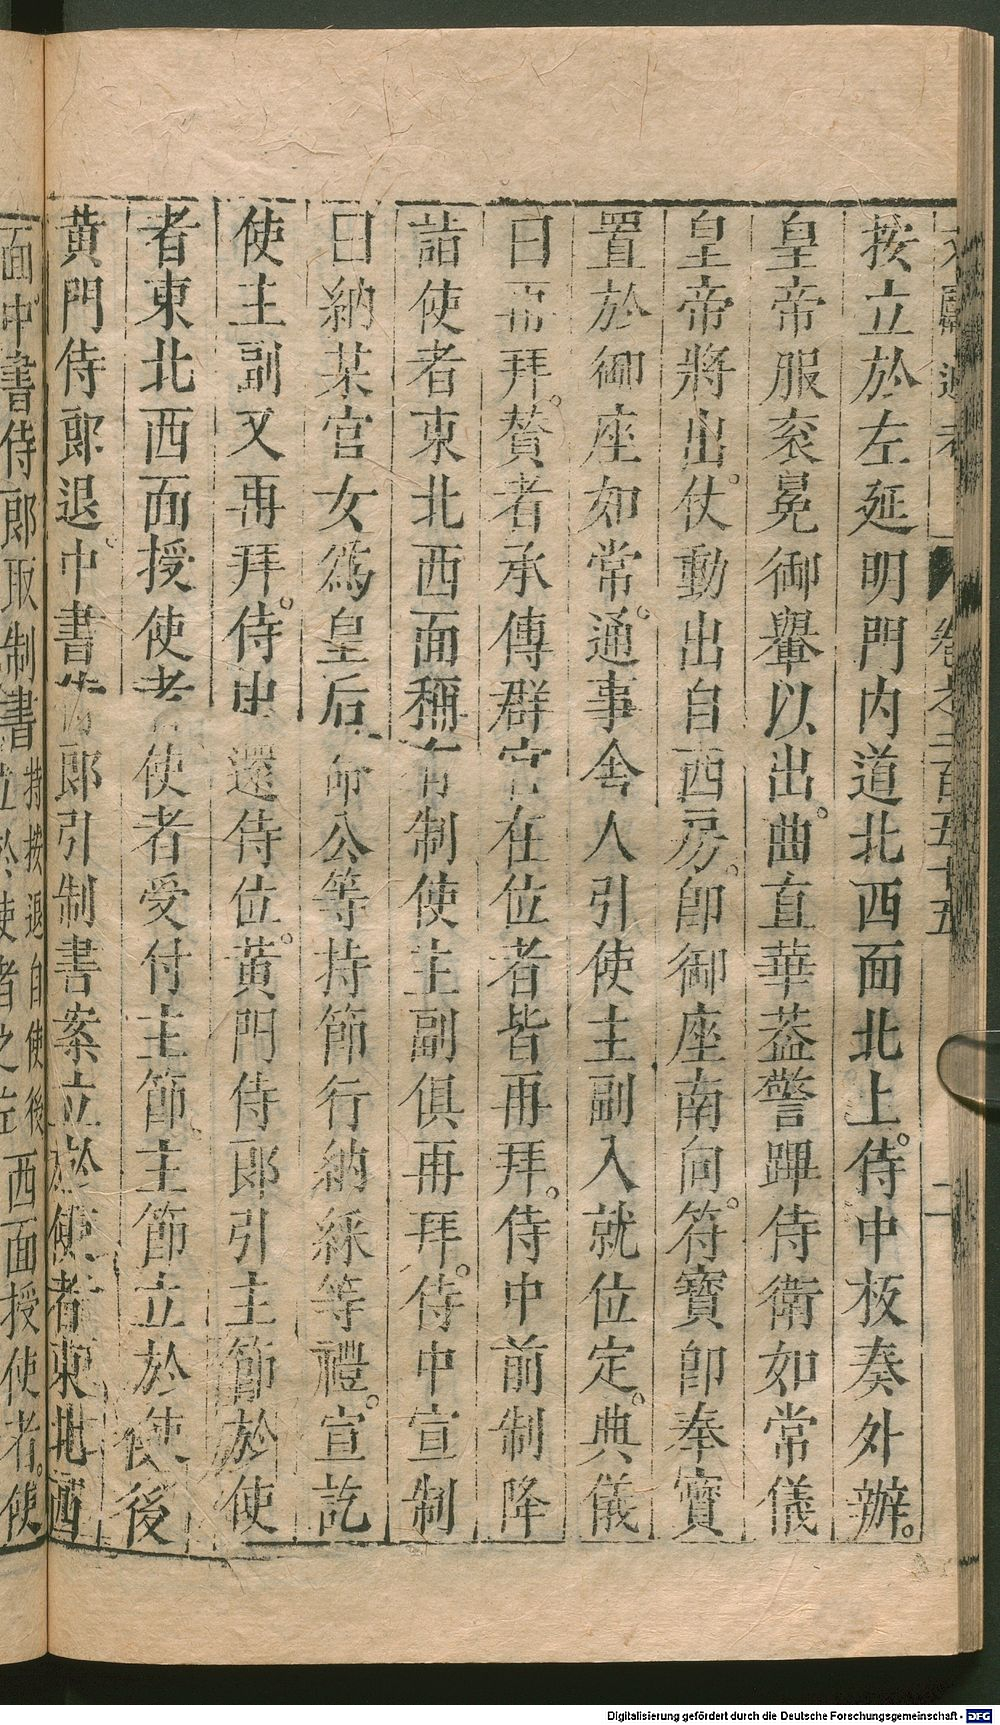 文獻通考 卷之二百五十五 二
按立於左延明門内道北西面北上侍中板奏外辦
皇帝服衮冕御轝以出曲直華葢警蹕侍衛如常儀
皇帝將出仗動出自西房卽御座南向符寶郎奉寶
置於御座如常通事舍人引使主副入就位定典儀
曰再拜贊者承傳群官在位者皆再拜侍中前制降
詣使者東北西面稱有制使主副俱再拜侍中宣制
曰納某官女爲皇后命公等持節行納綵等禮宣訖
使主副又再拜侍中還侍位黃門侍郎引主節於使
者東北西面授使者使者受付主節主節立於使後
黃門侍郎退中書侍郎引制書案立於使者東北西
面中書侍郎取制書持按退自使後立於使者之左西面授使者使
Digitalisierung gefördert durch die Deutsche Forschungsgemeinschaft - DFG